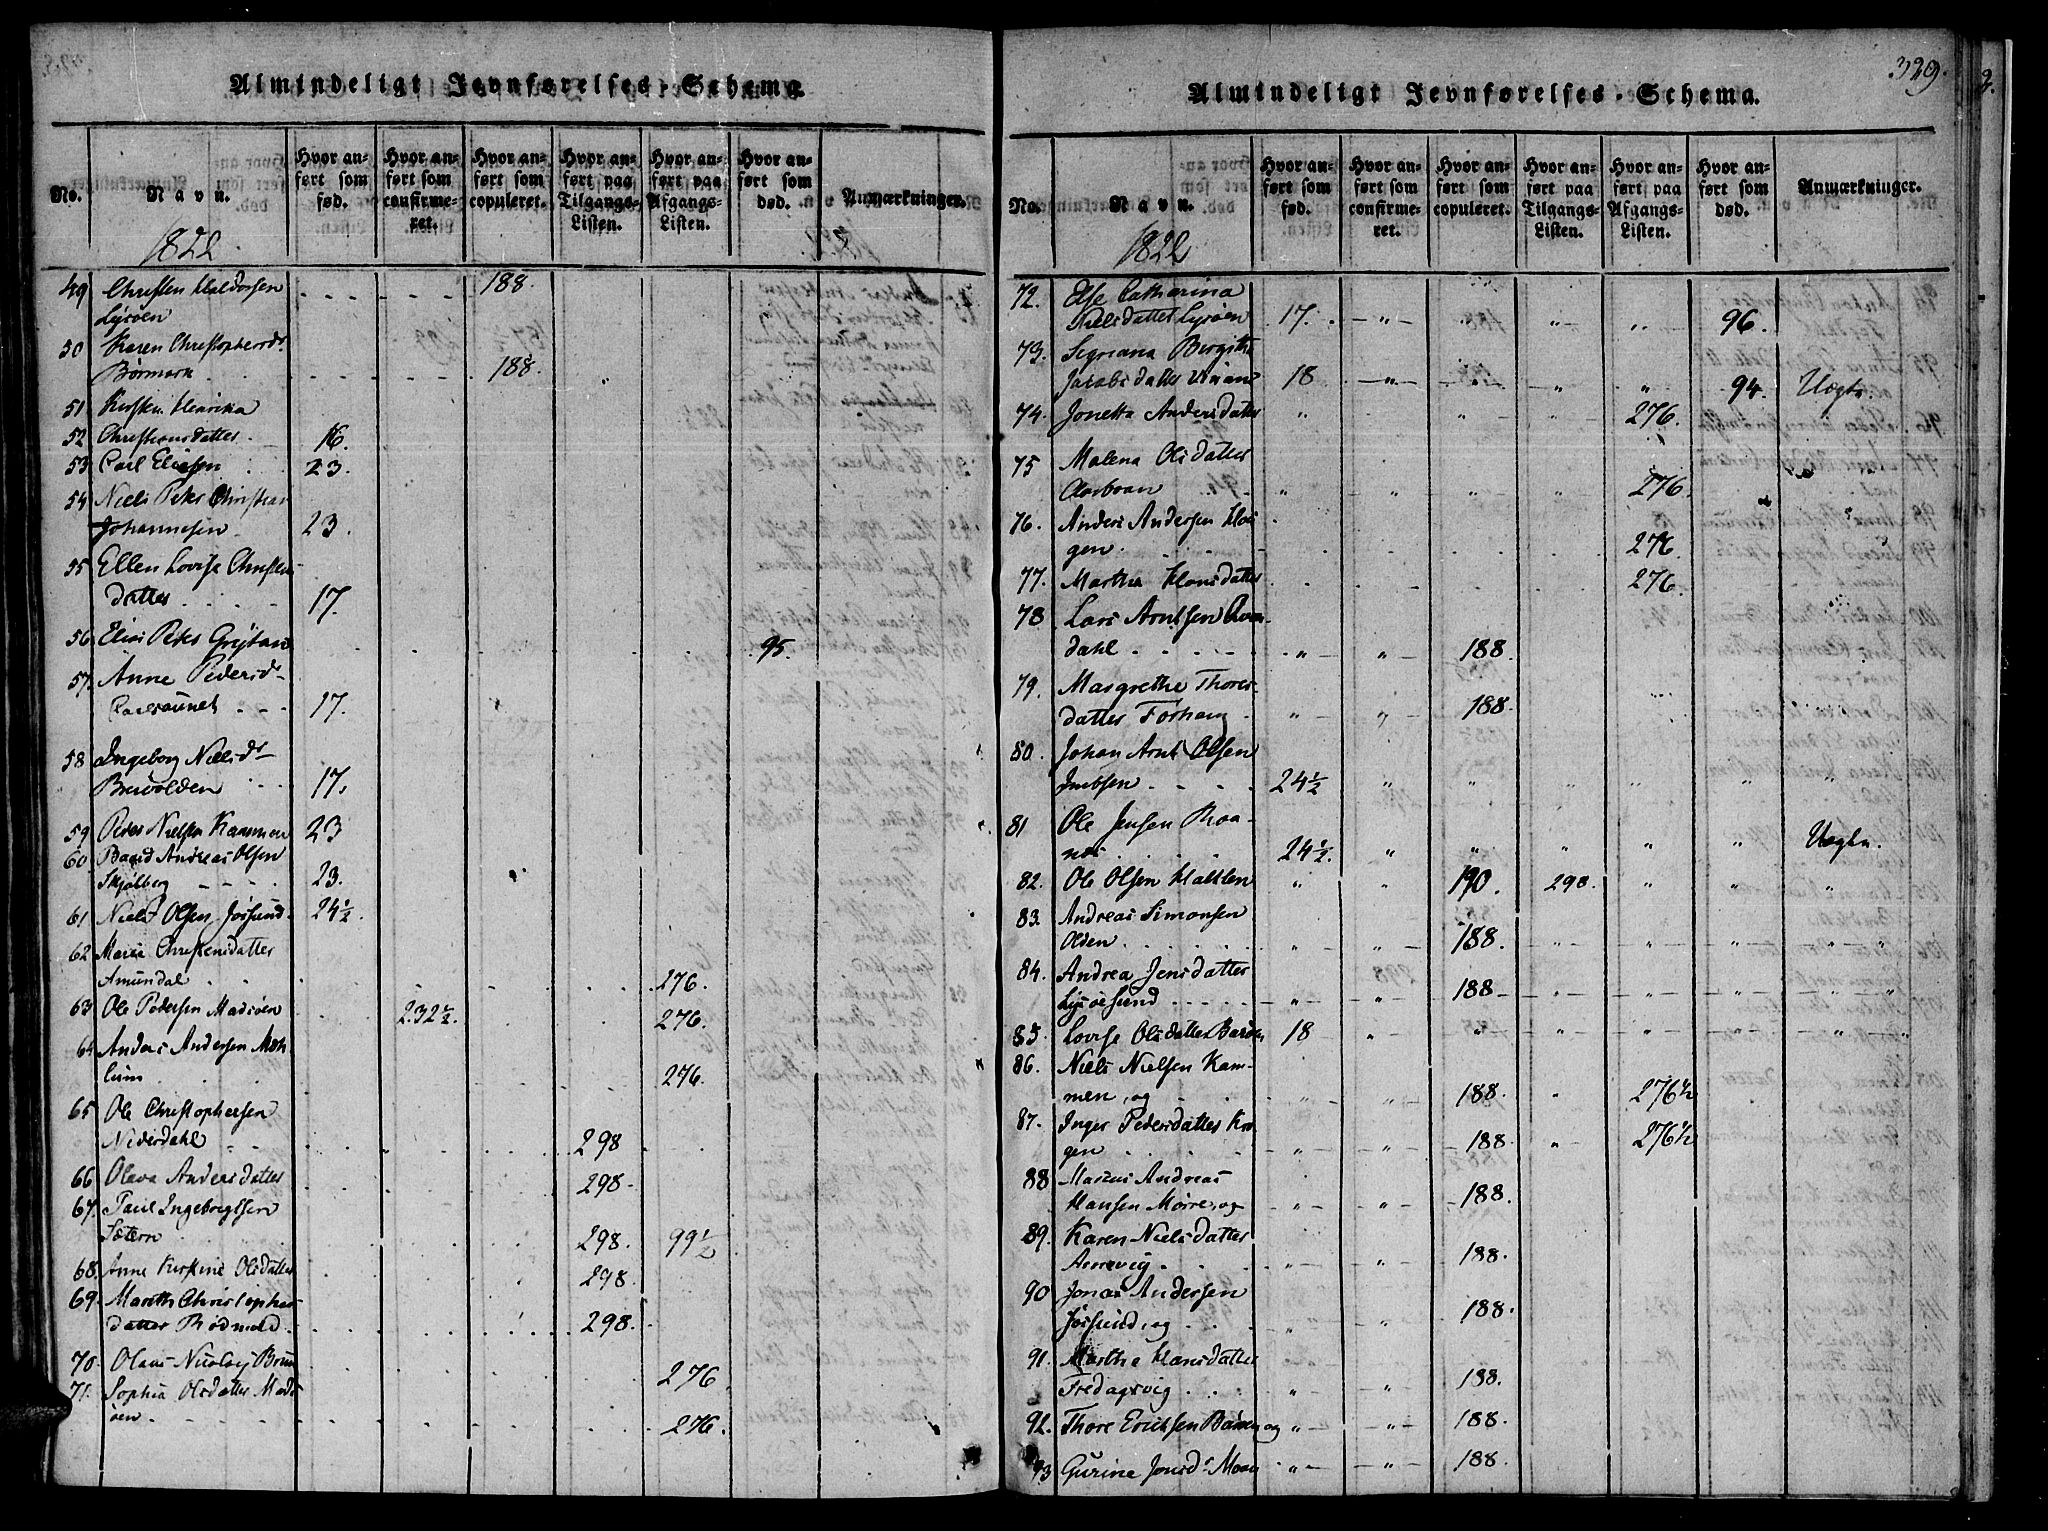 Almindeligt Jevnførelses-Schema.
No.
Navn.
Hvor anført som fød.
Hvor anført som confirmeret.
Hvor anført som copuleret.
Hvor anført paa Tilgangs-Listen.
Hvor anført paa Afgangs-Listen.
Hvor anført som død.
Anmærkninger.
1822
49 Christen Haldorsen
Lysøen 188.
50 Karen Christophersdr
Børmark 188.
51 Kirsten Henrika
52 Christiansdatter 16.
53 Carl Eliesen 23.
54 Niels Peter Christian
Johannesen 23.
55 Ellen Lovise Christens
datter 17.
56 Elias Peter 95.
57. Anne Pedersd
17.
58 Ingeborg Nielsdr
17.
59 Peder Nielsen Kammen 23
60. Andreas Olsen
Skjølberg 23.
61 Niels Olsen Jøssund 24½
62 Maria Christensdatter
Amundal 276.
63 Ole Pedersen Madsøen 232½. 276.
64 Anders Andersen
276.
65 Ole Christophersen
Nidersdahl 298
66 Olava Andersdatter 298.
67. Paul Ingebrigtsen
Sætern 298. 99½
68. Anne Kirstine Olsdatter 298.
69. Mareth Christopher
datter 298.
70. Olaus Nicolay 276
71. Sophia Olsdatter Mads
øen 276.
329.
Almindeligt Jevnførelses-Schema.
No.
Navn.
Hvor anført som fød.
Hvor anført som confirmeret.
Hvor anført som copuleret.
Hvor anført paa Tilgangs-Listen.
Hvor anført paa Afgangs-Listen.
Hvor anført som død.
Anmærkninger.
1822
72. Else Catharina
Nielsdatter Lysøen 17. 96.
73. Birgitha
Jacobsdatter 18 94. Uægte.
74. Jonetta Andersdatter 276.
75 Malena Olsdatter
276.
76. Anders Andersen Hou
gen 276.
77. Martha Hansdatter 276.
78 Lars Arntsen
dahl 188.
79. Margrethe Thores
datter Forhaug 188.
80. Johan Arnt Olsen
24½
81 Ole Jensen Roa
nes 24½. Uægte.
82. Ole Olsen 190. 298.
83. Andreas Simonsen
Olden 188.
84. Andrea Jensdatter
Lysøesund 188
85. Lovise Olsdatter 18
86. Niels Nielsen Kam
men, og 188. 276½
87. Inger Pedersdatter Kro
gen 188 276½
88 Marcus Andreas
Hansen Mørre, og 188.
89. Karen Nielsdatter
188.
90 Jonas Andersen
Jøssund, og 188.
91. Marthe Hansdatter
Fredagsvig 188.
92. Thore Erichsen og 188.
93 Gurine Jonsdr Moan 188.